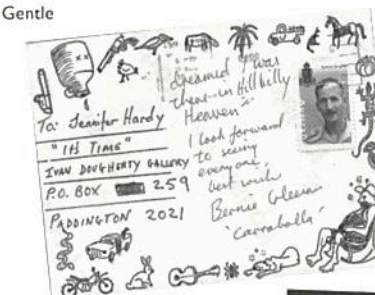 Gentle
To: Jennifer Hardy
"It's Time"
IVAN DOUGHERTY GALLERY
P.O. BOX 259
PADDINGTON 2021
dreamed I was
there in Hillbilly
Heaven"
I look forward
to seeing
everyone,
best wish
Bernie Gleeson
'Carraballa'